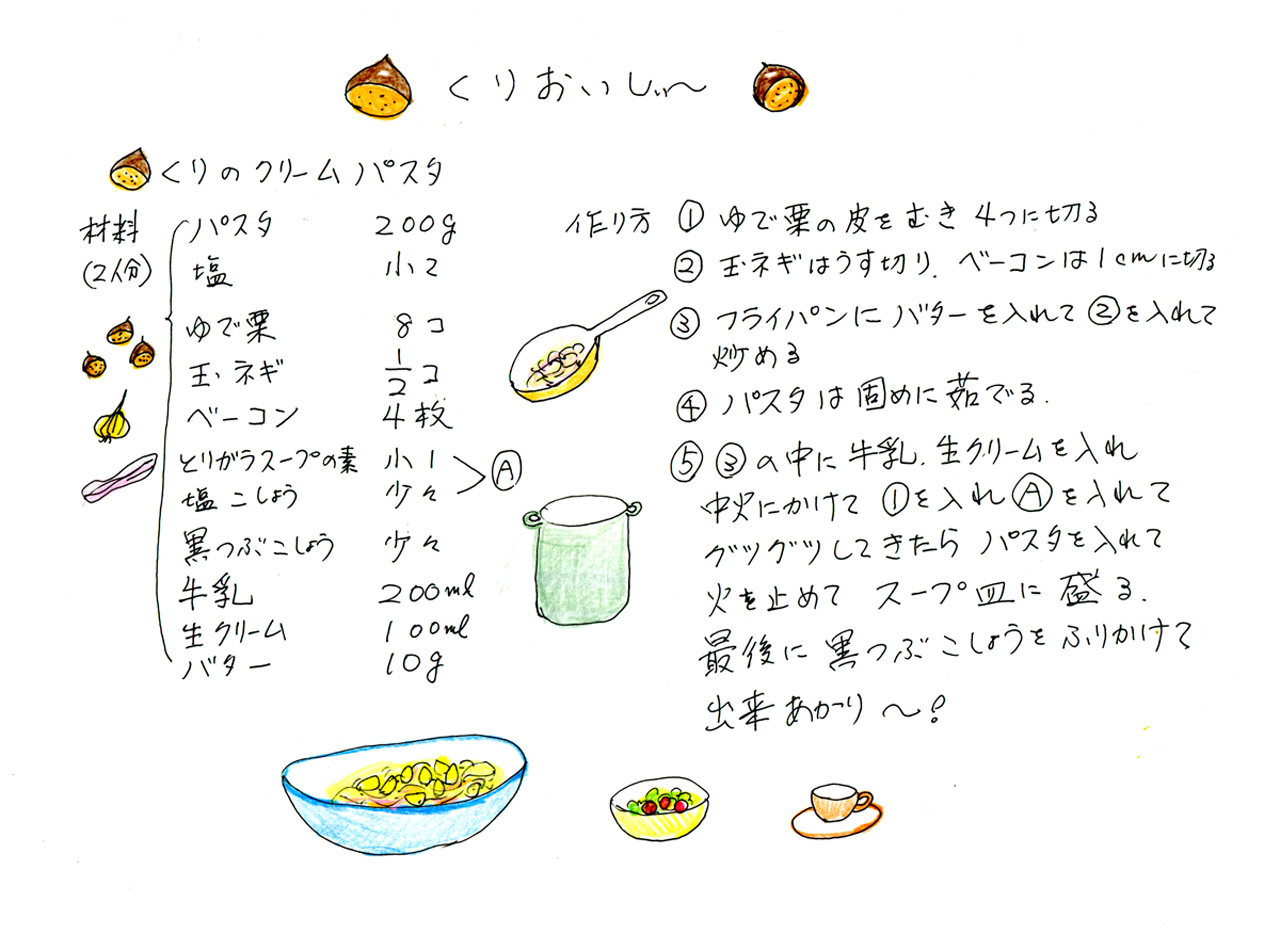 くりおいしぃ〜
くりのクリームパスタ
材料
(2人分)
パスタ 200g
塩 小2
ゆで栗 8コ
玉ネギ 1/2コ
ベーコン 4枚
とりガラスープの素 小1
塩こしょう 少々
Ⓐ
黒つぶこしょう 少々
牛乳 200ml
生クリーム 100ml
バター 10g
作り方 ① ゆで栗の皮をむき 4つに切る
② 玉ネギはうす切り、ベーコンは1cmに切る
③ フライパンにバターを入れて②を入れて
炒める
④ パスタは固めに茹でる.
⑤ ③の中に牛乳、生クリームを入れ
中火にかけて ①を入れⒶを入れて
グツグツしてきたら パスタを入れて
火を止めて スープ皿に盛る.
最後に黒つぶこしょうをふりかけて
出来あがり〜!